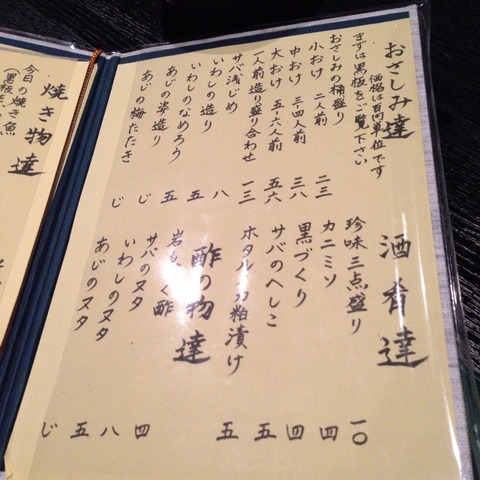 おさしみ達
価格は百円単位です
まずは黒板をご覧下さい
おさしみの桶盛り
小おけ 二人前 二三
中おけ 三・四人前 三八
大おけ 五・六人前 五六
一人前造り盛り合わせ 一三
サバ浅じめ 八
いわしの造り 五
いわしのなめろう 五
あじの姿造り じ
あじの梅たたき じ
酒肴達
珍味三点盛り 一〇
カニミソ 四
黒づくり 四
サバのへしこ 五
ホタルイカ粕漬け 五
酢の物達
岩もずく酢 四
サバのヌタ 八
いわしのヌタ 五
あじのヌタ じ
焼き物達
今日の焼き魚